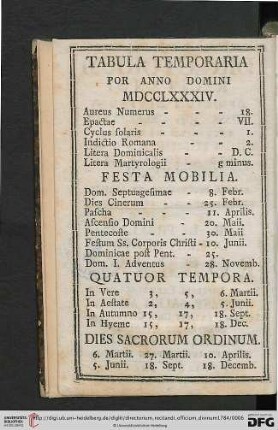 TABULA TEMPORARIA
POR ANNO DOMINI
MDCCLXXXIV.
Aureus Numerus - - - 18.
Epactae - - - VII.
Cyclus solaris - - - 1.
Indictio Romana - - 2.
Litera Dominicalis - - D. C.
Litera Martyrologii - g minus.
FESTA MOBILIA.
Dom. Septuagesimae - 8. Febr.
Dies Cinerum - - 25. Febr.
Pascha - - - 11. Aprilis.
Ascensio Domini - 20. Maii.
Pentecoste - - 30. Maii
Festum Ss. Corporis Christi - 10. Junii.
Dominicae post Pent. - 25.
Dom. I. Adventus - 28. Novemb.
QUATUOR TEMPORA.
In Vere 3, 5, 6. Martii.
In Aestate 2, 4, 5. Junii.
In Autumno 15, 17, 18. Sept.
In Hyeme 15, 17, 18. Dec.
DIES SACRORUM ORDINUM.
6. Martii. 27. Martii. 10. Aprilis.
5. Junii. 18. Sept. 18. Decemb.
UNIVERSITÄTS-
BIBLIOTHEK
HEIDELBERG
http://digi.ub.uni-heidelberg.de/diglit/directorium_recitandi_officium_divinum1784/0006
© Universitätsbibliothek Heidelberg
gefördert durch die
DFG